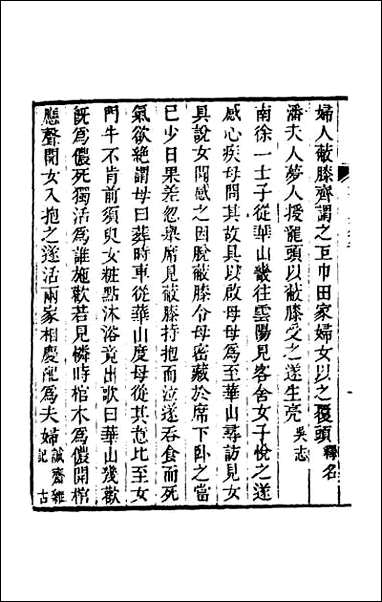 婦人蔽膝齊謂之巨巾田家婦女以之覆頭釋名
潘夫人夢人授龍頭以蔽膝受之遂生亮吳志
南徐一士子從華山畿往雲陽見客舍女子悅之遂
感心疾母問其故具以啟母母為至華山尋訪見女
具說女聞感之因脫蔽膝令母密藏於席下臥之當
已少日果差忽舉席見蔽膝持抱而泣遂吞食而死
氣欲絕謂母曰葬時車從華山度母從其意比至女
門牛不肯前須臾女粧點沐浴竟出歌曰華山幾歡
旣為儂死獨活為誰施歡若見憐時棺木為儂開棺
應聲開女入抱之遂活兩家相慶配為夫婦誠齋雜記
古